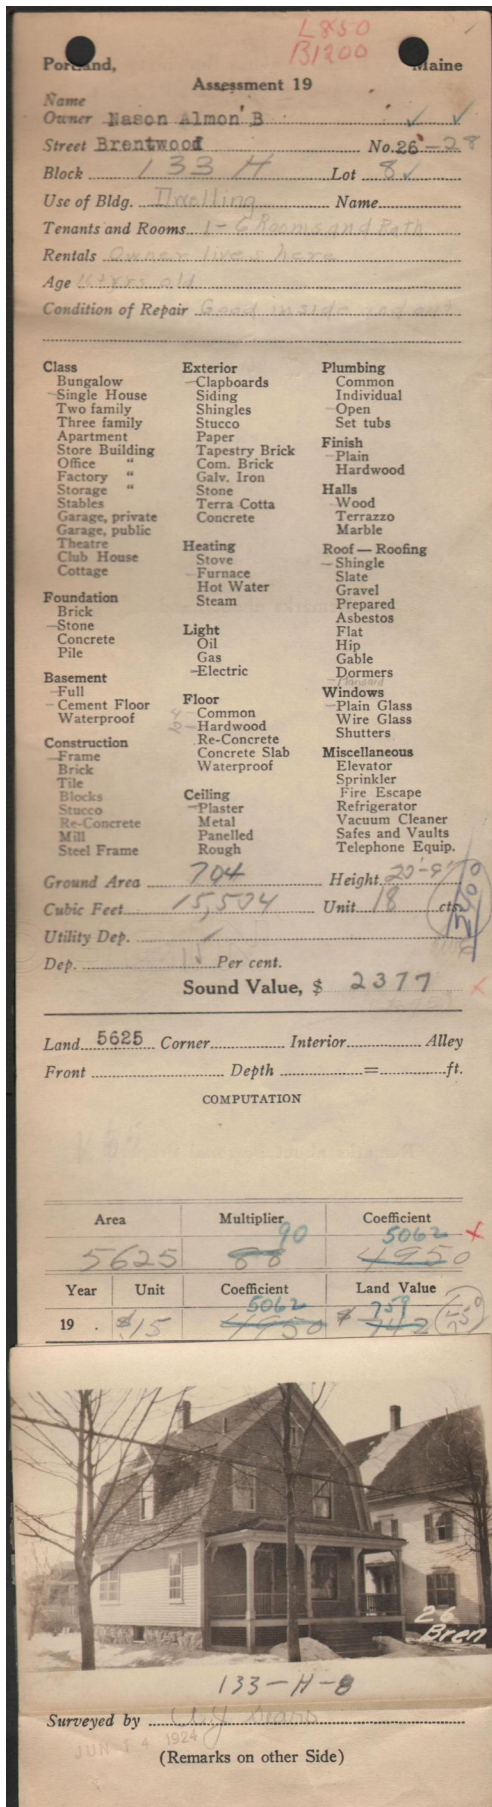 L850
B1200
Portland, Maine
Assessment 19
Name
Owner Nason Almon B
Street Brentwood No. 26-28
Block 133 H Lot 8
Use of Bldg. Dwelling Name
Tenants and Rooms 1-6 Rooms and Bath
Rentals Owner lives here
Age yrs old
Condition of Repair Good inside and out
Class
Bungalow
Single House
Two family
Three family
Apartment
Store Building
Office "
Factory "
Storage "
Stables
Garage, private
Garage, public
Theatre
Club House
Cottage
Foundation
Brick
Stone
Concrete
Pile
Basement
Full
Cement Floor
Waterproof
Construction
Frame
Brick
Tile
Blocks
Stucco
Re-Concrete
Mill
Steel Frame
Exterior
Clapboards
Siding
Shingles
Stucco
Paper
Tapestry Brick
Com. Brick
Galv. Iron
Stone
Terra Cotta
Concrete
Heating
Stove
Furnace
Hot Water
Steam
Light
Oil
Gas
Electric
Floor
4 Common
2 Hardwood
Re-Concrete
Concrete Slab
Waterproof
Ceiling
Plaster
Metal
Panelled
Rough
Plumbing
Common
Individual
Open
Set tubs
Finish
Plain
Hardwood
Halls
Wood
Terrazzo
Marble
Roof — Roofing
Shingle
Slate
Gravel
Prepared
Asbestos
Flat
Hip
Gable
Dormers
Mansard
Windows
Plain Glass
Wire Glass
Shutters
Miscellaneous
Elevator
Sprinkler
Fire Escape
Refrigerator
Vacuum Cleaner
Safes and Vaults
Telephone Equip.
Ground Area 704 Height
Cubic Feet Unit 18 cts.
Utility Dep.
Dep. Per cent.
Sound Value, $ 2377
Land 5625 Corner Interior Alley
Front Depth = ft.
COMPUTATION
Area Multiplier Coefficient
90 5062
5625 88 4950
Year Unit Coefficient Land Value
5062 759
19 . $.15 4950 $ 742 750
26
Bren
133-H-8
Surveyed by
JUN 14 1924
(Remarks on other Side)